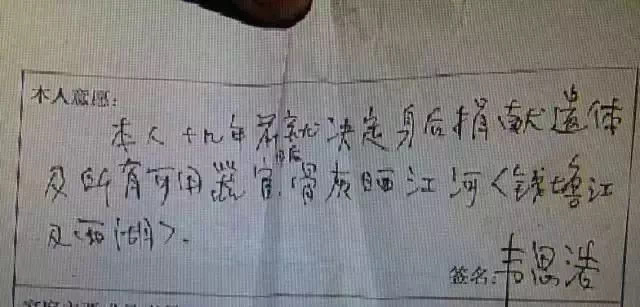 本人意愿:
本人十九年前就决定身后捐献遗体
及所有可用器官,骨灰洒江河<钱塘江
及西湖>.
签名:韦思浩